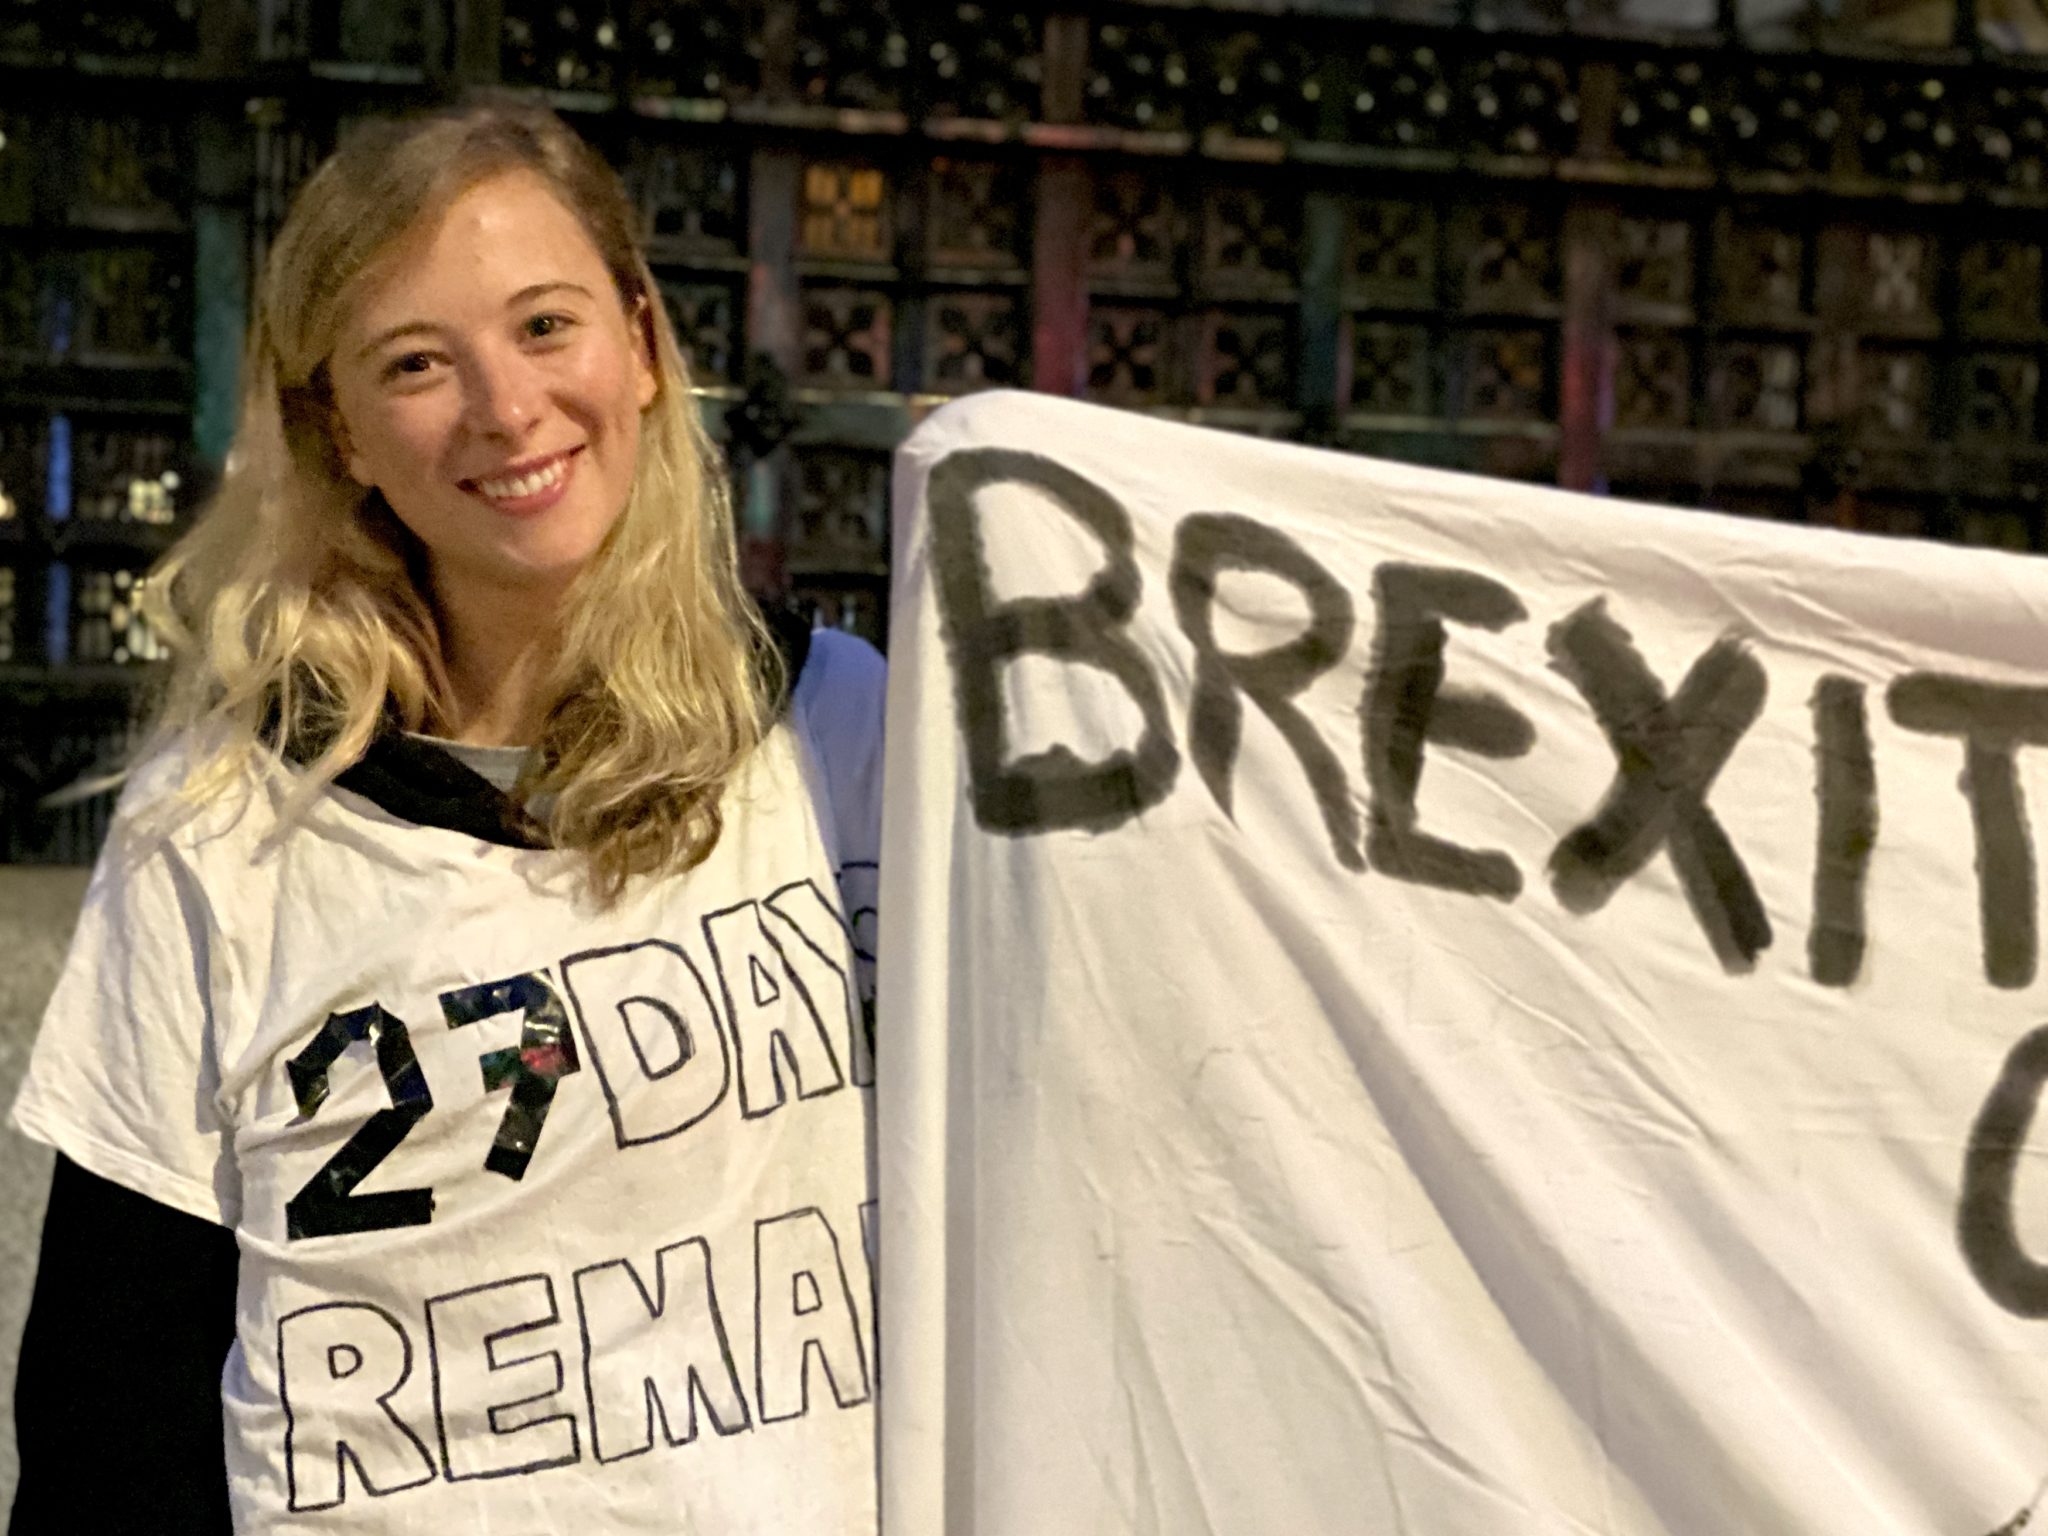 27 DAY
REMA
BREXIT